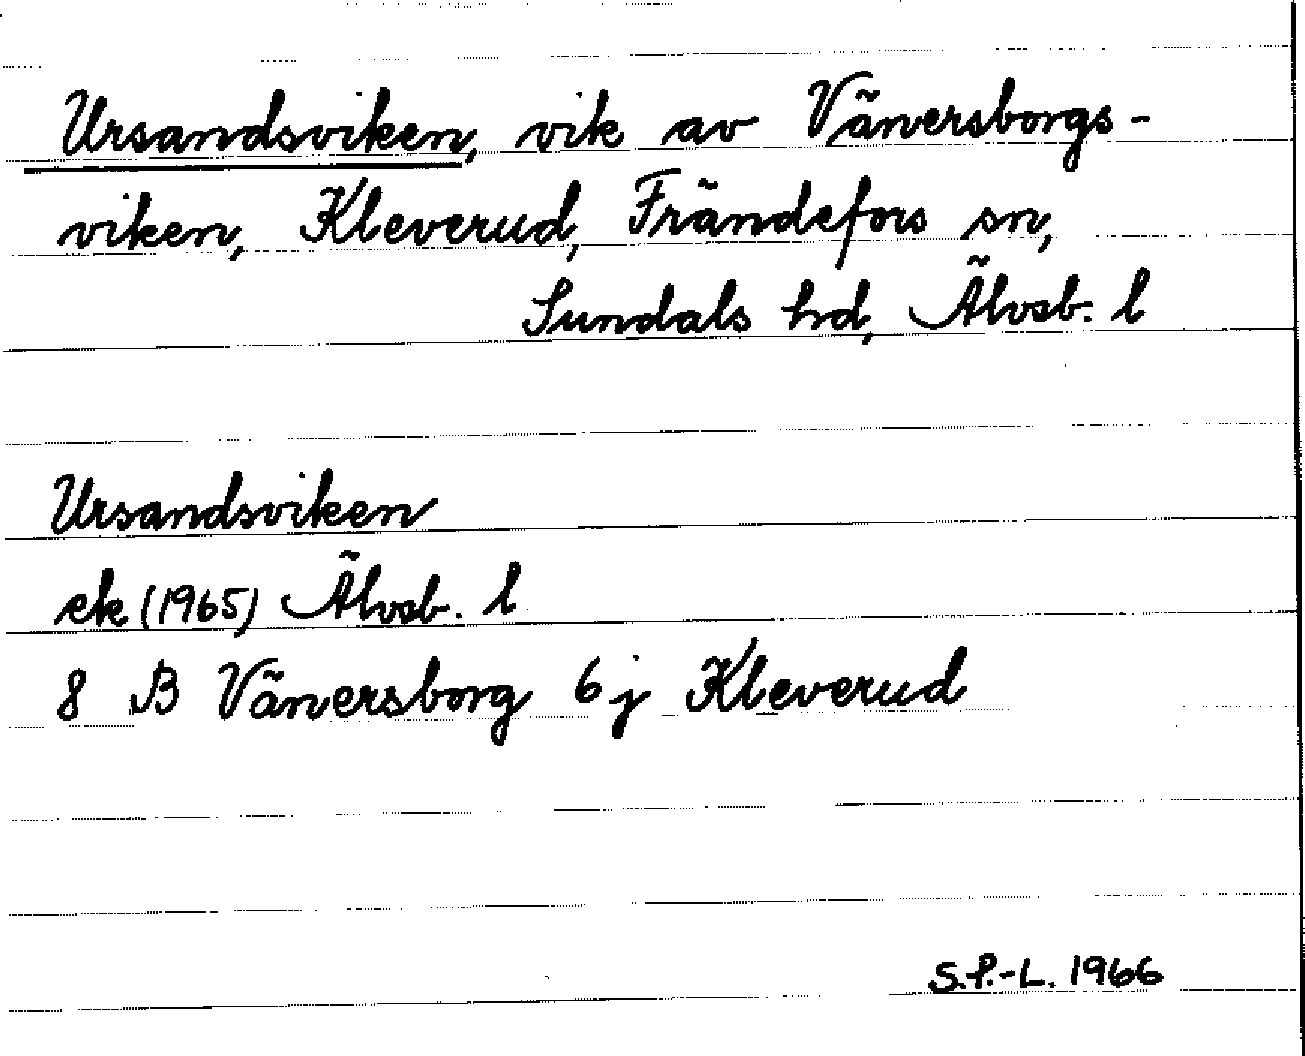 Ursandsviken, vik av Vänersborgs-
viken, Kleverud, Frändefors sn,
Sundals hd, Älvsb. l
Ursandsviken
ek (1965) Älvsb. l
8 B Vänersborg 6 j Kleverud
S.P.-L. 1966